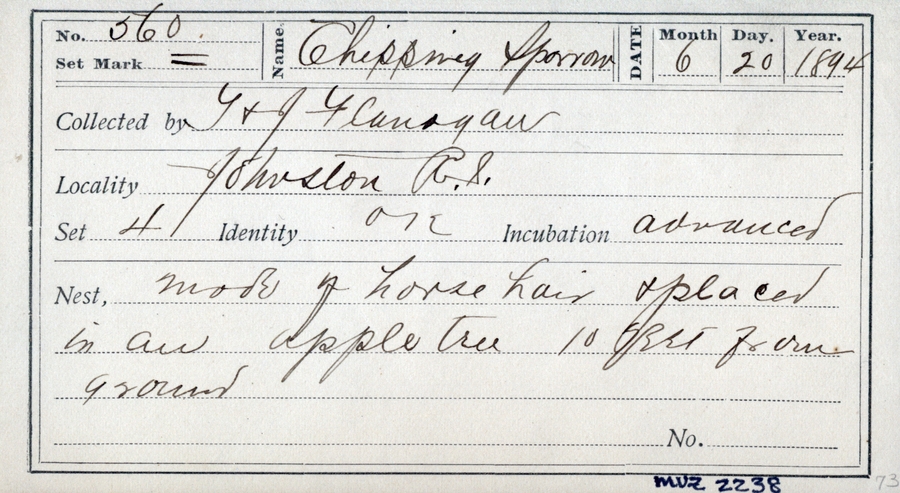 No. 560. Name. Chipping Sparrow DATE Month 6 Day. 20 Year. 1894
Set Mark =
Collected by J & J Flanagan
Locality Johnston R.I.
Set 4 Identity OK Incubation advanced
Nest, made of horse hair & placed
in an apple tree 10 feet from
ground
No.
MVZ 2238
73